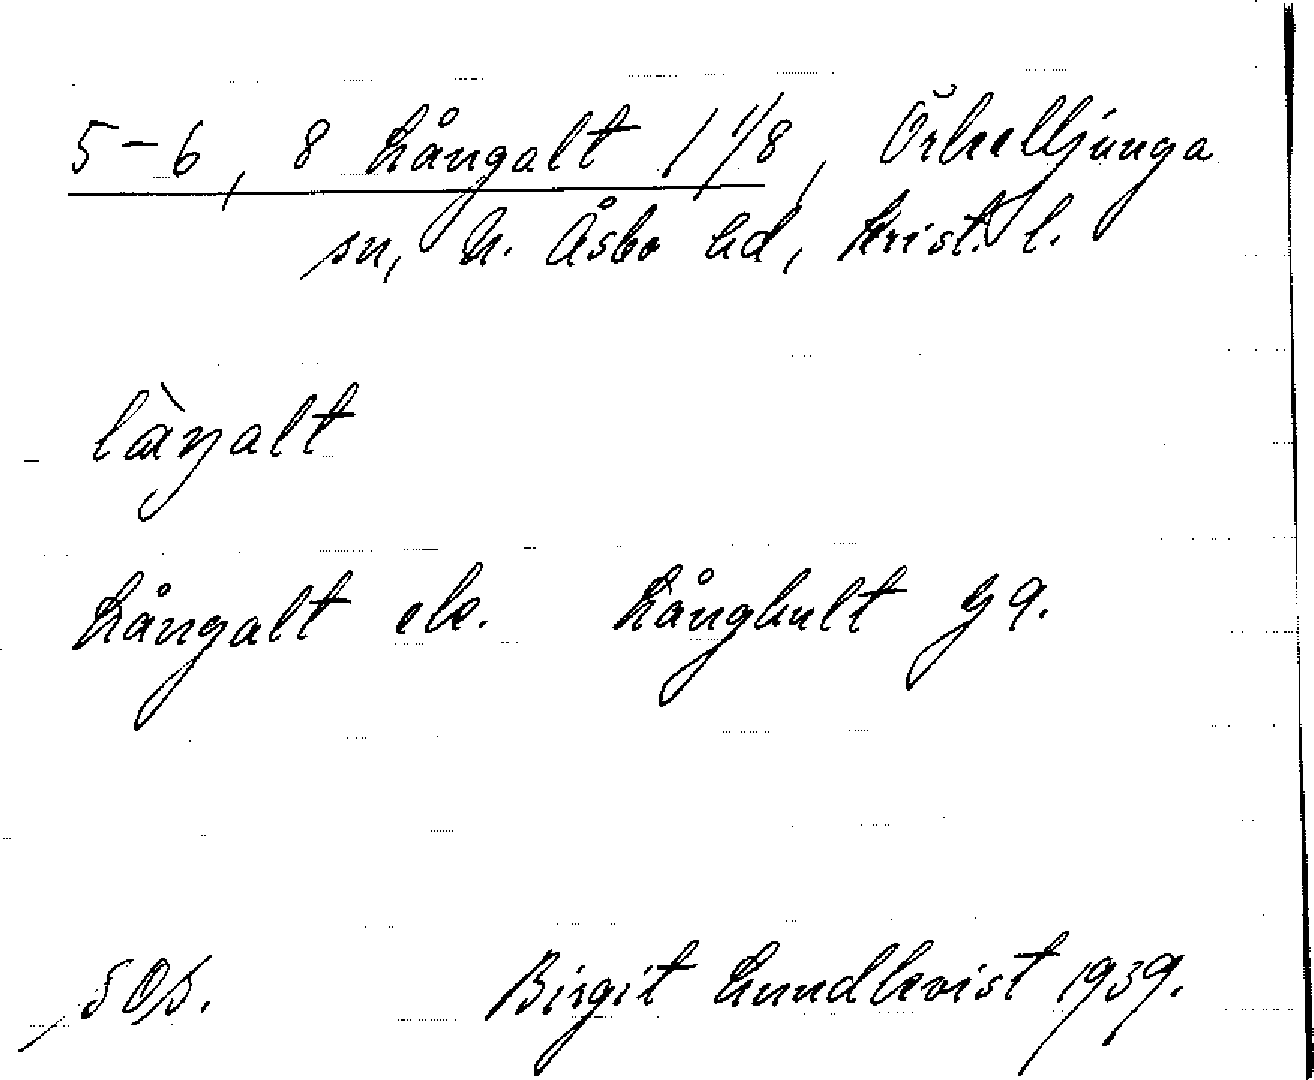 5-6, 8 Långalt 1 1/8, Örkelljunga
sn, N. Åsbo hd, Krist. l.
làŋalt
Långalt ek. Långhult G 9.
SOs. Birgit Lundkvist 1939.